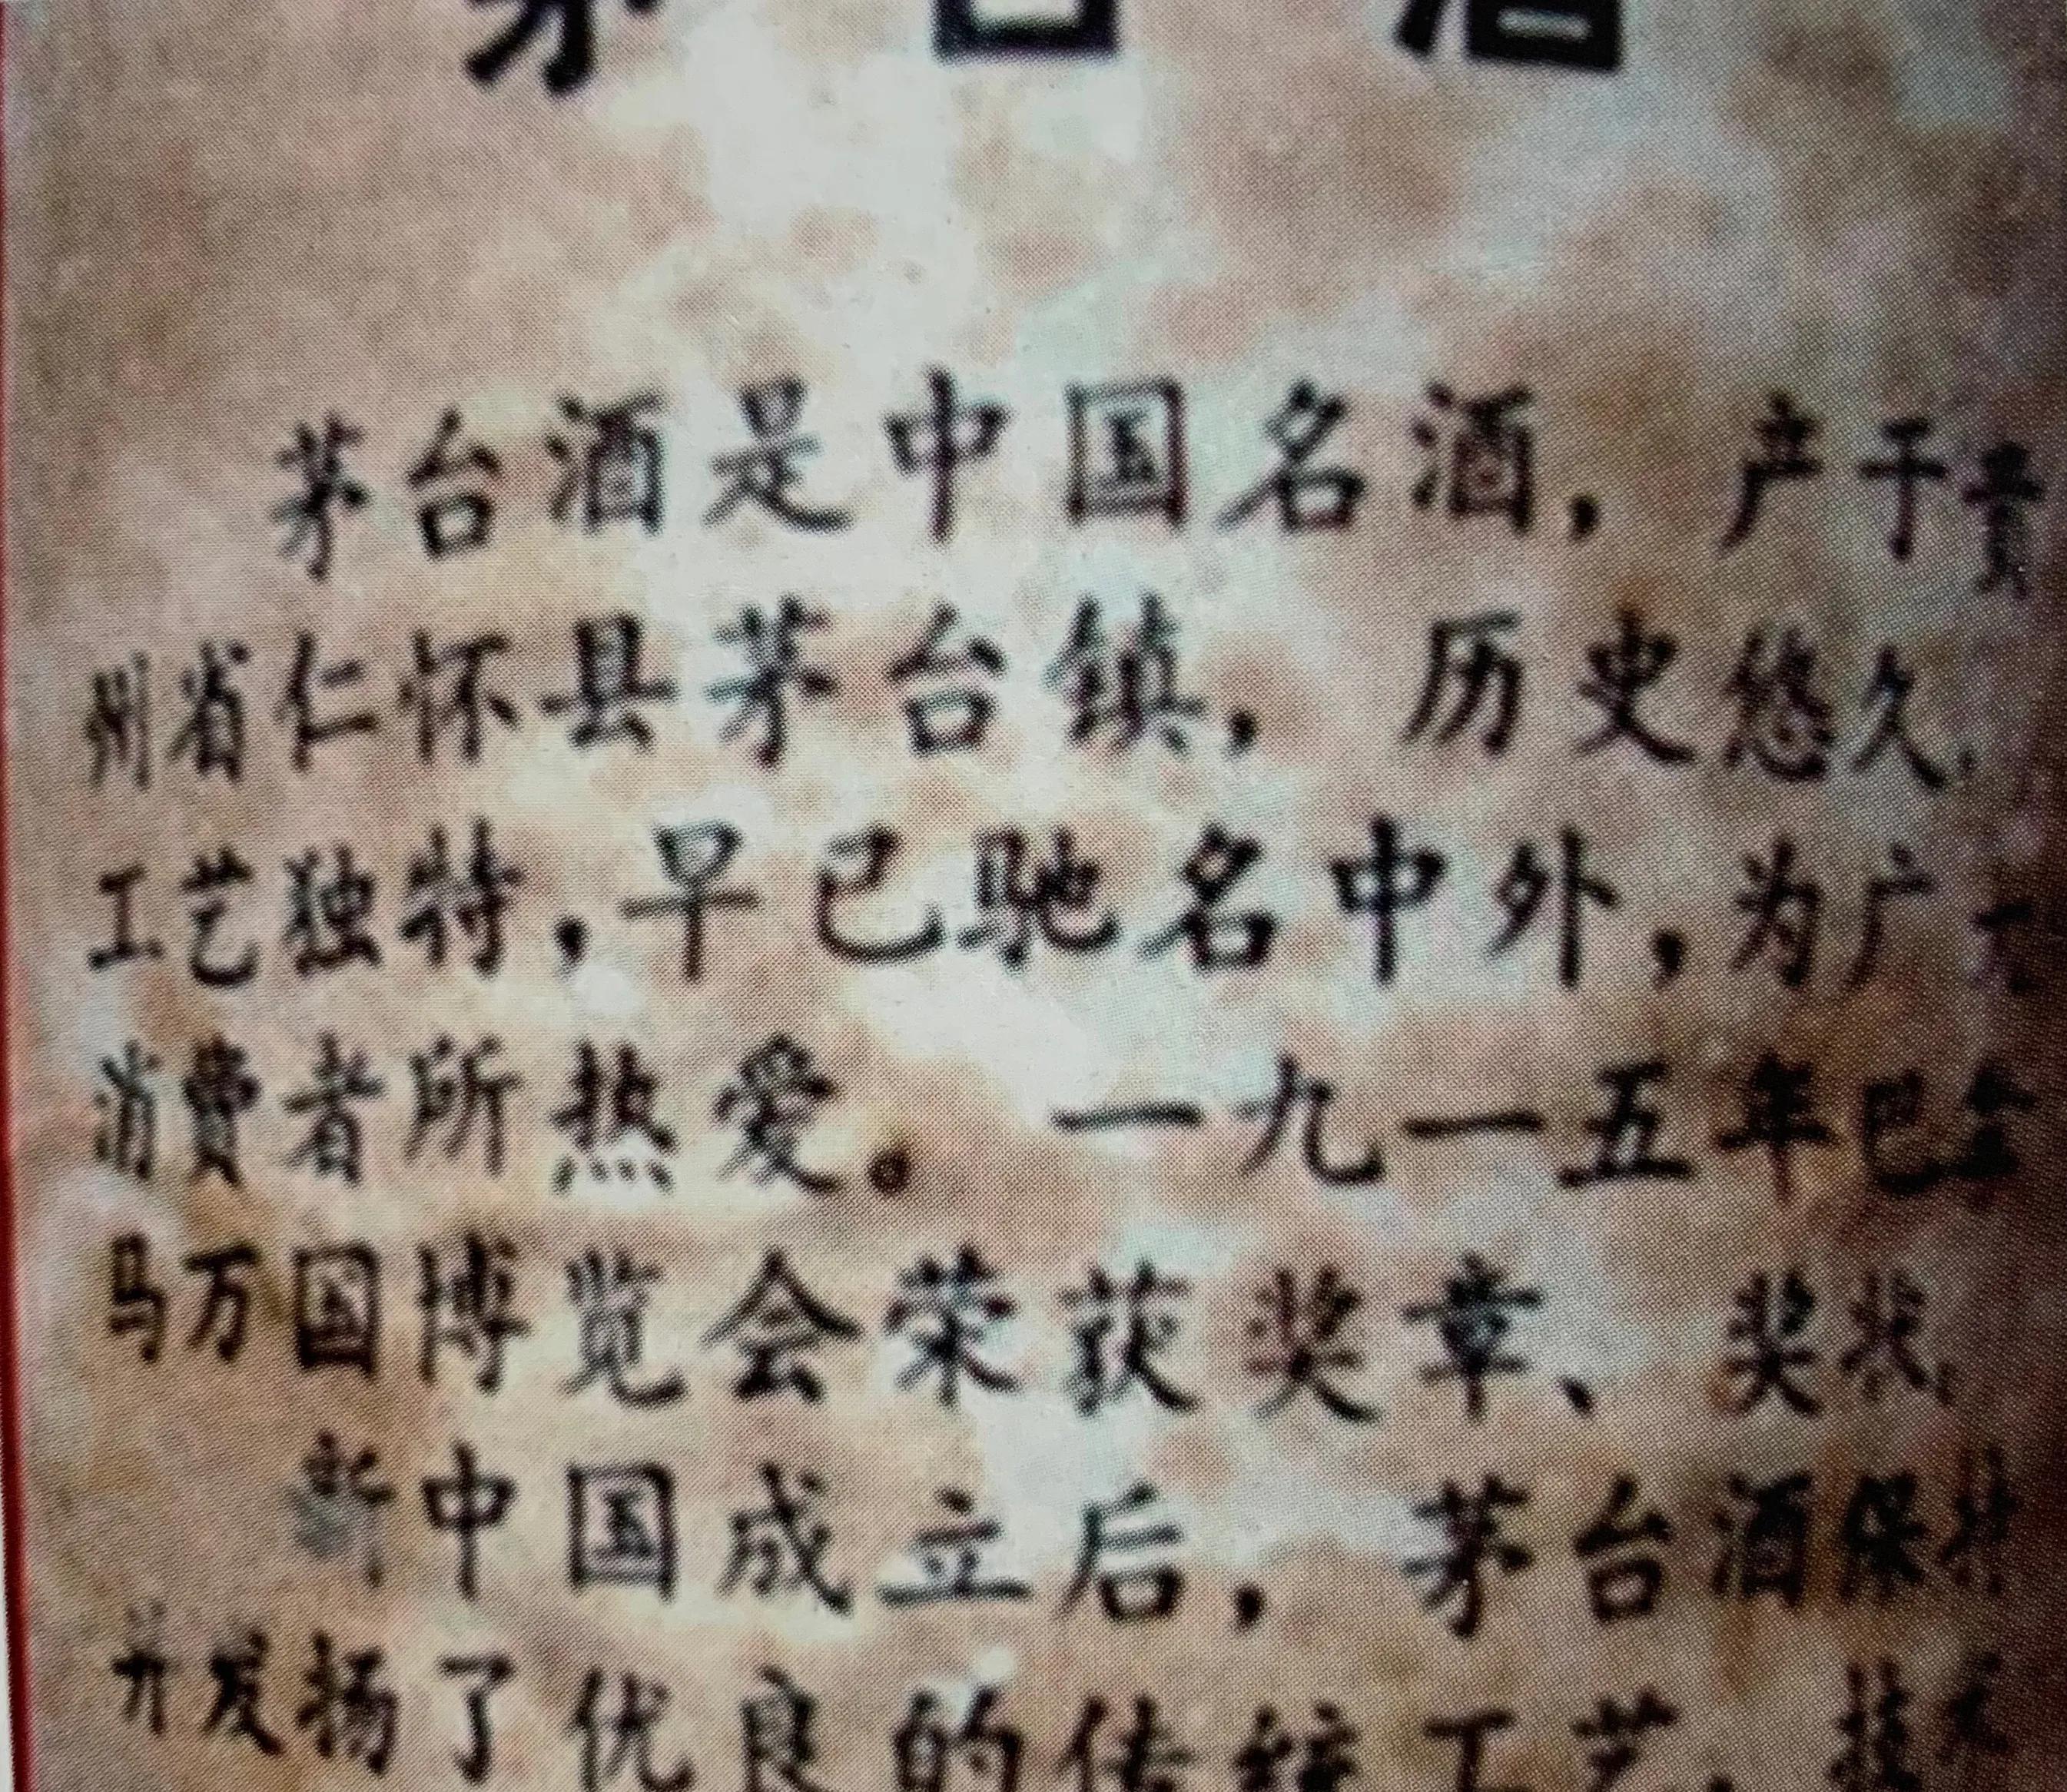 茅台酒
茅台酒是中国名酒，产于贵
州省仁怀县茅台镇，历史悠久，
工艺独特，早已驰名中外，为广大
消费者所热爱。一九一五年巴拿
马万国博览会荣获奖章、奖状，
新中国成立后，茅台酒保持
并发扬了优良的传统工艺，技术